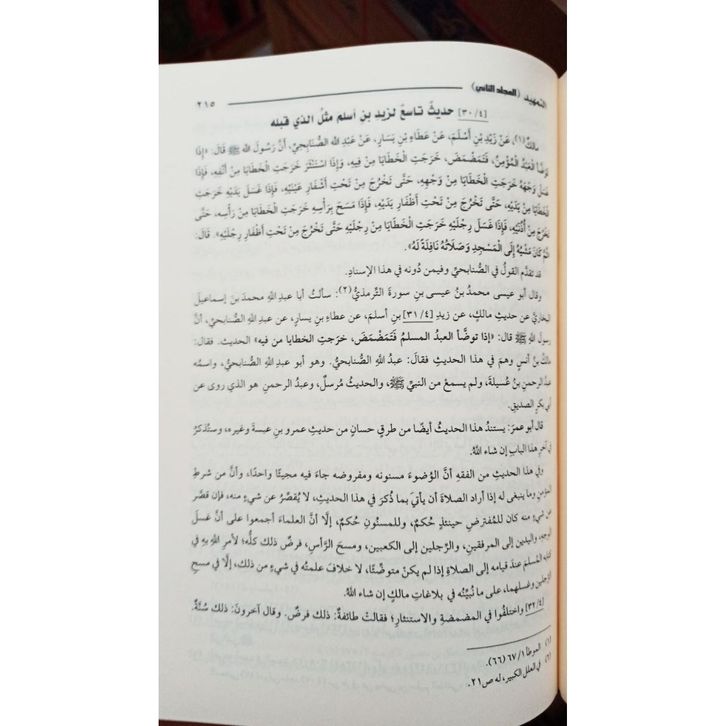 التمهيد (المجلد الثاني) ٢١٥
[٣٠/٤] حديثٌ تاسعٌ لزيد بنِ أسلم مثلُ الذي قبله
مالكٌ(١)، عَنْ زَيْدِ بْنِ أَسْلَمَ، عَنْ عَطَاءِ بْنِ يَسَارٍ، عَنْ عَبْدِ الله الصُّنَابِحِيِّ، أَنَّ رَسُولَ الله ﷺ قَالَ: «إِذَا
تَوَضَّأَ الْعَبْدُ الْمُؤْمِنُ، فَتَمَضْمَضَ، خَرَجَتِ الْخَطَايَا مِنْ فِيهِ، وَإِذَا اسْتَنْثَرَ خَرَجَتِ الْخَطَايَا مِنْ أَنْفِهِ، فَإِذَا
غَسَلَ وَجْهَهُ خَرَجَتِ الْخَطَايَا مِنْ وَجْهِهِ، حَتَّى تَخْرُجَ مِنْ تَحْتِ أَشْفَارِ عَيْنَيْهِ، فَإِذَا غَسَلَ يَدَيْهِ خَرَجَتِ
الْخَطَايَا مِنْ يَدَيْهِ، حَتَّى تَخْرُجَ مِنْ تَحْتِ أَظْفَارِ يَدَيْهِ، فَإِذَا مَسَحَ بِرَأْسِهِ خَرَجَتِ الْخَطَايَا مِنْ رَأْسِهِ، حَتَّى
تَخْرُجَ مِنْ أُذُنَيْهِ، فَإِذَا غَسَلَ رِجْلَيْهِ خَرَجَتِ الْخَطَايَا مِنْ رِجْلَيْهِ حَتَّى تَخْرُجَ مِنْ تَحْتِ أَظْفَارِ رِجْلَيْهِ». قَالَ:
«ثُمَّ كَانَ مَشْيُهُ إِلَى الْمَسْجِدِ وَصَلَاتُهُ نَافِلَةً لَهُ».
قد تقدَّم القولُ في الصُّنابحيِّ وفيمن دُونه في هذا الإسنادِ.
وقال أبو عيسى محمدُ بنُ عيسى بنِ سورةَ الترمذيُّ(٢): سألتُ أبا عبدِ الله محمدَ بنَ إسماعيلَ
البخاريَّ عن حديثِ مالكٍ، عن زيدِ [٣١/٤] بنِ أسلمَ، عن عطاءِ بنِ يسارٍ، عن عبدِ الله الصُّنابحيِّ، أنَّ
رسولَ الله ﷺ قال: «إذا توضَّأ العبدُ المسلمُ فَتَمَضْمَضَ، خرَجتِ الخطايا من فيه» الحديث. فقال:
مالكُ بنُ أنسٍ وهمَ في هذا الحديثِ فقالَ: عبدُ الله الصُّنابحيُّ. وهو أبو عبدِ الله الصُّنابحيُّ، واسمُه
عبدُ الرحمنِ بنُ عُسيلةَ، ولم يسمعْ من النبيِّ ﷺ، والحديثُ مُرسلٌ، وعبدُ الرحمنِ هو الذي روى عن
أبي بكرٍ الصديقِ.
قال أبو عمرَ: يستندُ هذا الحديثُ أيضًا من طرقٍ حسانٍ من حديثِ عمرو بنِ عبسةَ وغيرِه، وستُذكرُ
في آخرِ هذا البابِ إن شاء اللهُ.
وفي هذا الحديثِ من الفقهِ أنَّ الوُضوءَ مسنونَه ومفروضَه جاءَ فيه مجيئًا واحدًا، وأنَّ من شرطِ
المؤمنِ وما ينبغي له إذا أراد الصلاةَ أن يأتيَ بما ذُكرَ في هذا الحديثِ، لا يُقصِّرُ عن شيءٍ منه، فإن قصَّر
عن شيءٍ منه كان للمُفترضِ حينئذٍ حُكمٌ، وللمسنُونِ حُكمٌ، إلَّا أنَّ العلماءَ أجمعوا على أنَّ غسلَ
الوجهِ، واليدينِ إلى المرفقينِ، والرِّجلينِ إلى الكعبينِ، ومسحَ الرَّأسِ، فرضٌ ذلك كلُّه؛ لأمرِ اللهِ بِه في
كتابِه المُسلمَ عندَ قيامِه إلى الصلاةِ إذا لم يكنْ متوضِّئًا، لا خلافَ علمتُه في شيءٍ من ذلك، إلَّا في مسحِ
الرِّجلينِ وغسلِهما، على ما نُبيِّنُه في بلاغاتِ مالكٍ إن شاءَ اللهُ.
[٣٢/٤] واختلَفُوا في المضمضةِ والاستنثارِ؛ فقالتْ طائفةٌ: ذلك فرضٌ. وقال آخرونَ: ذلك سُنَّةٌ.
(١) الموطأ ١/ ٦٧ (٦٦).
(٢) في العلل الكبير، له ص٢١.